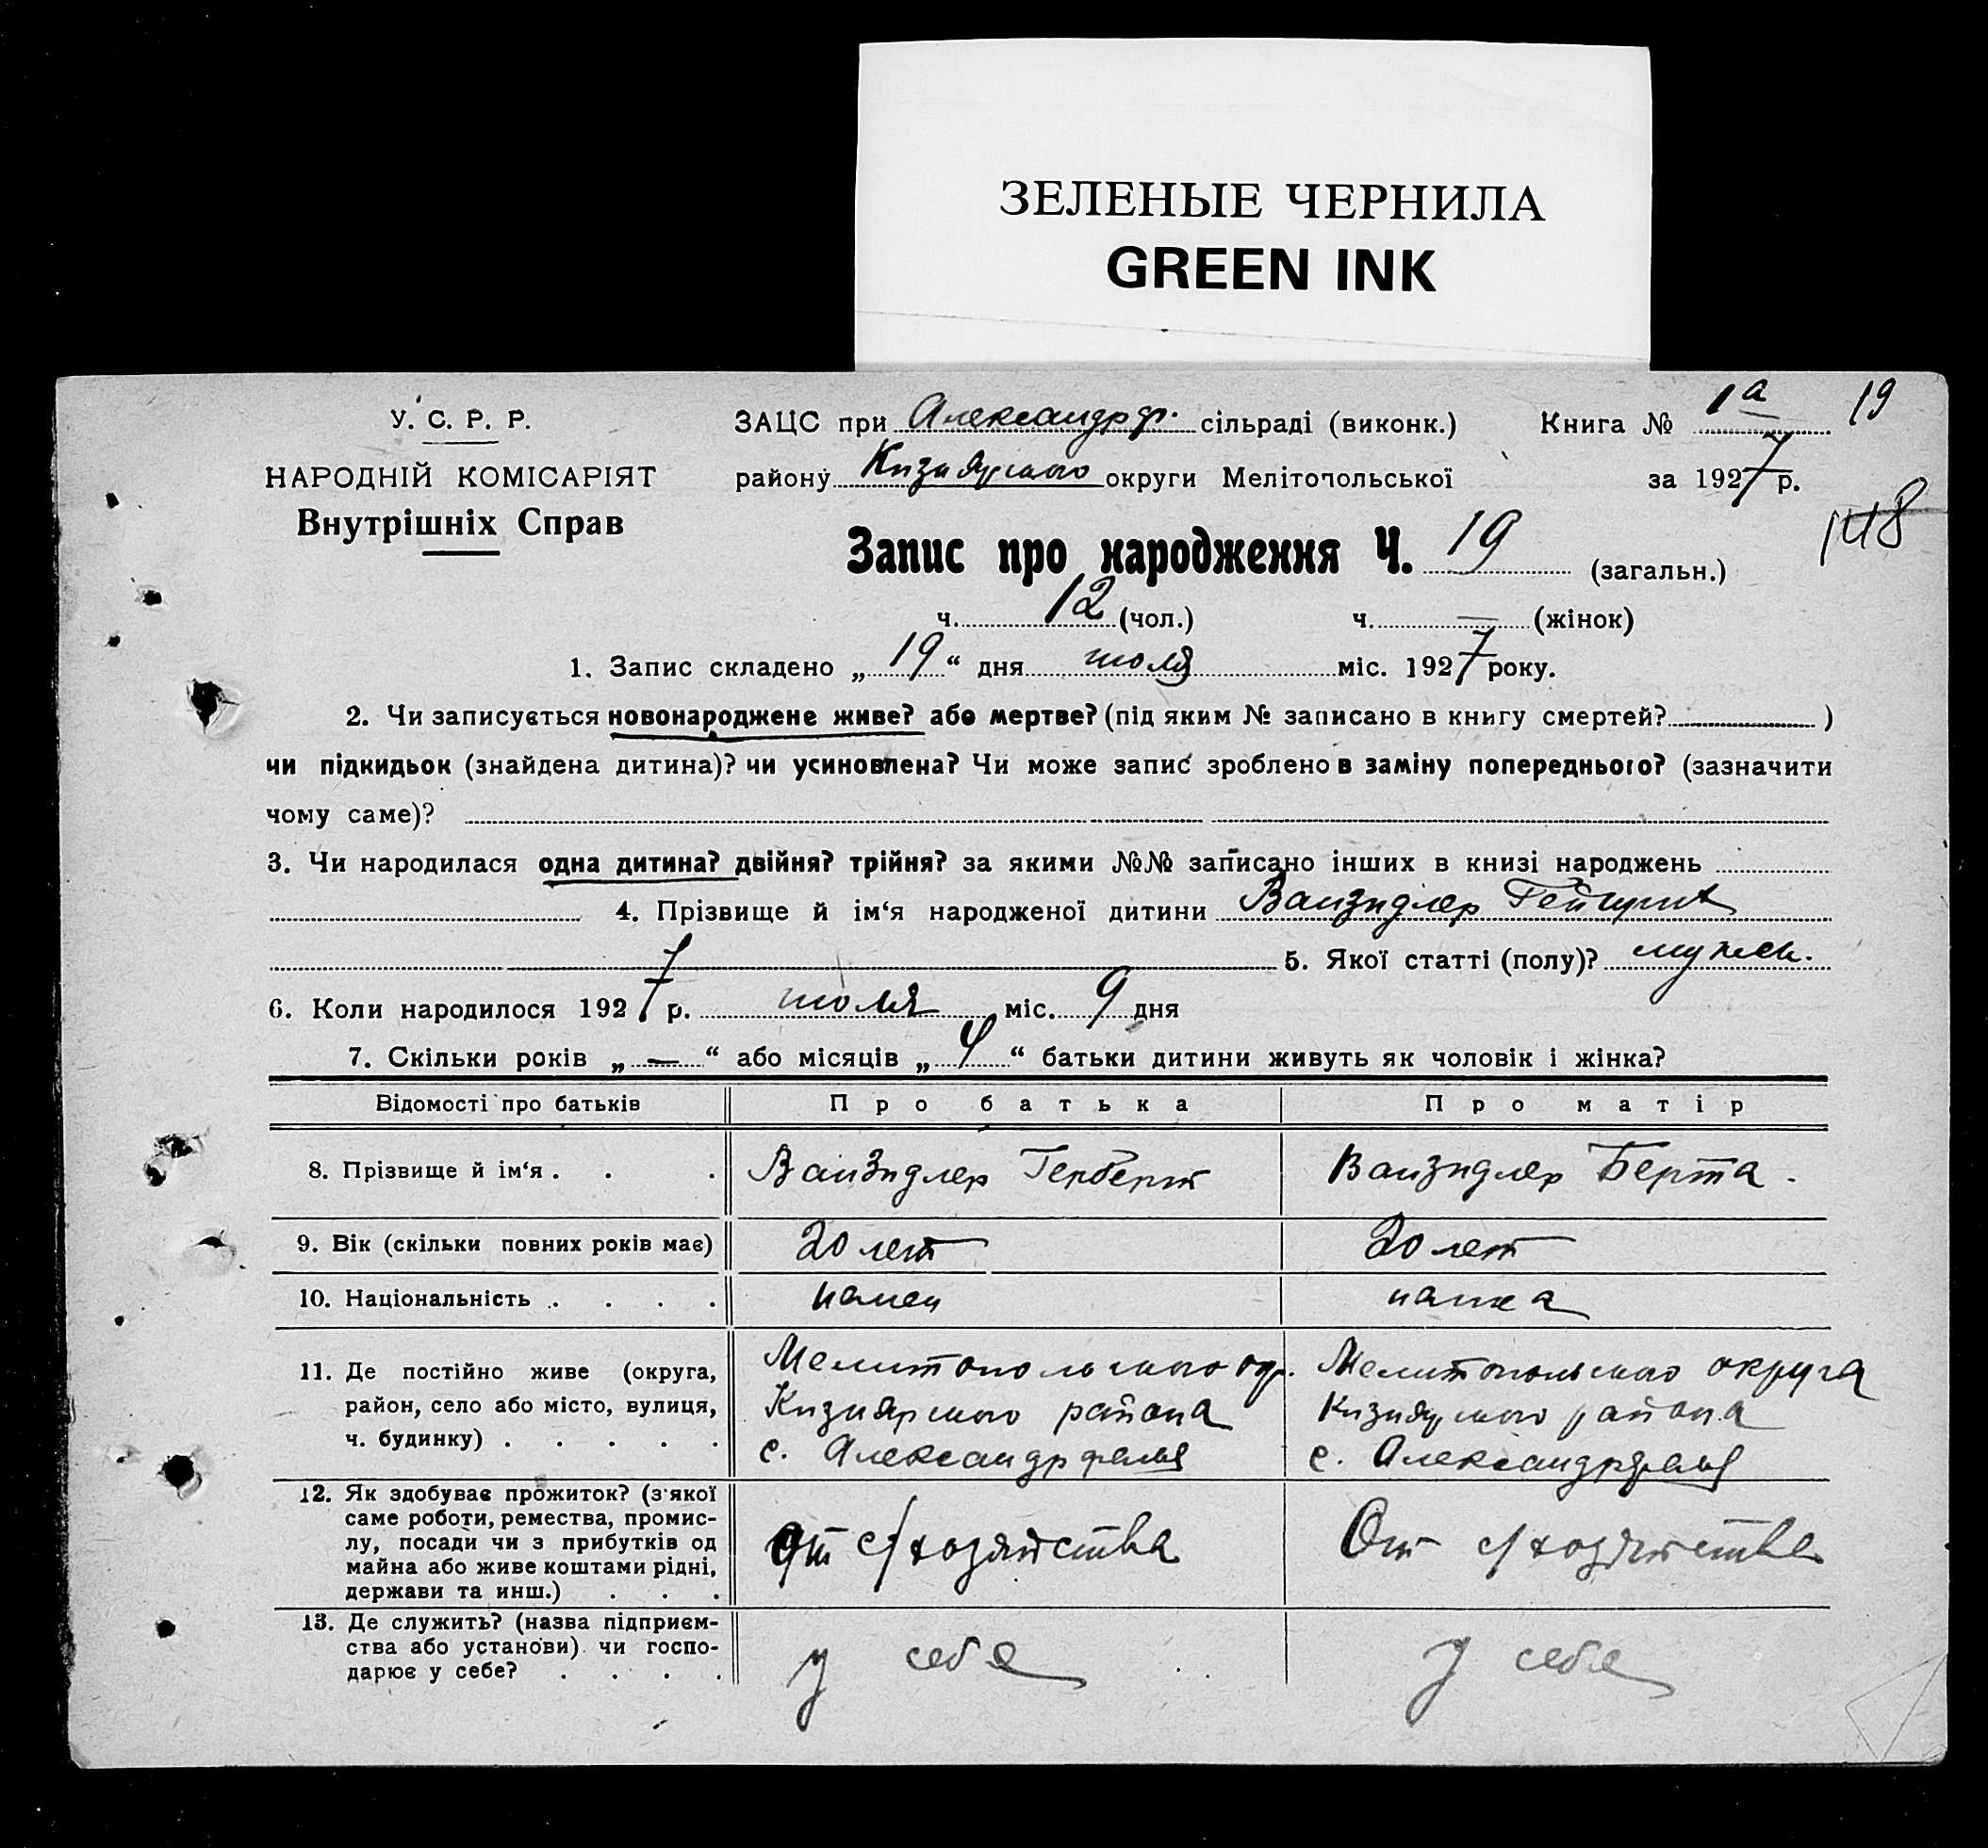 ЗЕЛЕНЫЕ ЧЕРНИЛА
GREEN INK
У. С. Р. Р.
НАРОДНІЙ КОМІСАРІЯТ
Внутрішніх Справ
ЗАЦС при Александрф. сільраді (виконк.) Книга № 1а 19
району Кизиярского округи Мелітопольської за 1927 р.
148
Запис про народження Ч. 19 (загальн.)
ч. 12 (чол.) ч. — (жінок)
1. Запис складено „ 19 “ дня июля міс. 1927 року.
2. Чи записується новонароджене живе? або мертве? (під яким № записано в книгу смертей? )
чи підкидьок (знайдена дитина)? чи усиновлена? Чи може запис зроблено в заміну попереднього? (зазначити
чому саме)?
3. Чи народилася одна дитина? двійня? трійня? за якими №№ записано інших в книзі народжень
4. Прізвище й ім‘я народженої дитини Ваизидлер
5. Якої статті (полу)? мужск.
6. Коли народилося 1927 р. июля міс. 9 дня
7. Скільки років „ — “ або місяців „ 4 “ батьки дитини живуть як чоловік і жінка?
Відомості про батьків Про батька Про матір
8. Прізвище й ім‘я . . . Ваизидлер Герберт Ваизидлер Берта .
9. Вік (скільки повних років має) 20 лет 20 лет
10. Національність . . . . немец немка
11. Де постійно живе (округа,
район, село або місто, вулиця,
ч. будинку) . . . . .
Мелитопольского окр.
Кизиярского района
с. Александрфельд
Мелитопольского округа
Кизиярского района
с. Александрфельд
12. Як здобуває прожиток? (з якої
саме роботи, ремества, промис-
лу, посади чи з прибутків од
майна або живе коштами рідні,
держави та инш.) . . .
От с/хозяйства
От с/хозяйства
13. Де служить? (назва підприєм-
ства або установи) чи госпо-
дарює у себе? . . . .
у себе
у себе